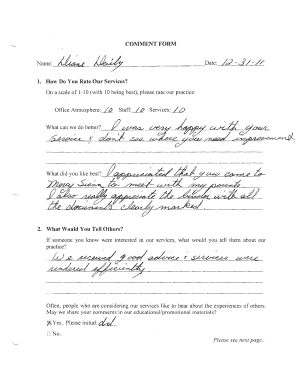 COMMENT FORM
Name: Diane Daily Date: 12-31-11
1. How Do You Rate Our Services?
On a scale of 1-10 (with 10 being best), please rate our practice:
Office Atmosphere: 10 Staff: 10 Services: 10
What can we do better? I was very happy with your
service & don't see where you need improvement
What did you like best? I appreciated that you came to
Mercy Siena to meet with my parents
I also really appreciate the binder with all
the documents clearly marked.
2. What Would You Tell Others?
If someone you know were interested in our services, what would you tell them about our
practice?
We received good advice & services were
rendered efficiently
Often, people who are considering our services like to hear about the experiences of others.
May we share your comments in our educational/promotional materials?
Yes. Please initial: dd
No.
Please see next page.